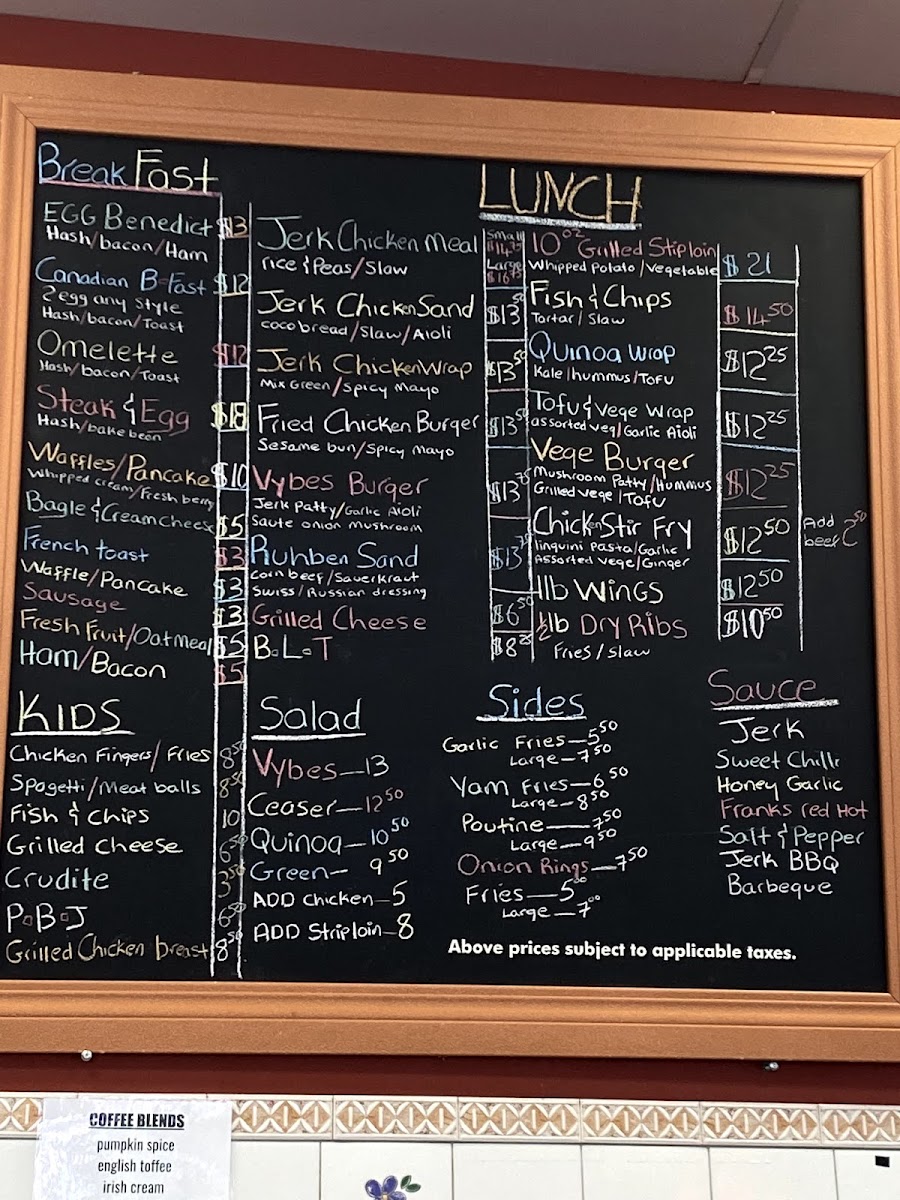 BreakFast
EGG Benedict $13
Hash/bacon/Ham
Canadian B-Fast $12
2 egg any Style
Hash/bacon/Toast
Omelette $12
Hash/bacon/Toast
Steak & Egg $18
Hash/bake bean
Waffles/Pancake $10
Whipped cream/Fresh berry
Bagle & Cream cheese $5
French toast $3
Waffle/Pancake $3
Sausage $3
Fresh Fruit/Oatmeal $5
Ham/Bacon $5
KIDS
Chicken Fingers/Fries 8.50
Spagetti/Meat balls 8.50
Fish & Chips 10
Grilled Cheese 6.50
Crudite 3.50
P.B.J 6.50
Grilled Chicken breast 8.50
LUNCH
Jerk Chicken Meal Small $14.75 Large $16.75
rice & Peas/Slaw
Jerk Chicken Sand $13.50
coco bread/Slaw/Aioli
Jerk Chicken Wrap $13.50
Mix Green/Spicy Mayo
Fried Chicken Burger $13.50
Sesame bun/Spicy Mayo
Vybes Burger $13.75
Jerk Patty/Garlic Aioli
Saute onion mushroom
Ruhben Sand $13.75
Corn beef/Sauerkraut
Swiss/Russian dressing
Grilled Cheese $6.50
B.L.T $8.25
10oz Grilled Stiploin $21
Whipped Potato/Vegetable
Fish & Chips $14.50
Tartar/Slaw
Quinoa Wrap $12.25
Kale/hummus/Tofu
Tofu & Vege Wrap $12.25
assorted veg/Garlic Aioli
Vege Burger $12.25
Mushroom Patty/Hummus
Grilled vege/Tofu
Chicken Stir Fry $12.50 Add beef 2.50
linquini Pasta/Garlic
Assorted Vege/Ginger
1lb Wings $12.50
½lb Dry Ribs $10.50
Fries/Slaw
Salad
Vybes—13
Ceaser—12.50
Quinoa—10.50
Green—9.50
ADD Chicken—5
ADD Striploin—8
Sides
Garlic Fries—5.50
Large—7.50
Yam Fries—6.50
Large—8.50
Poutine—7.50
Large—9.50
Onion Rings—7.50
Fries—5.00
Large—7.00
Sauce
Jerk
Sweet Chilli
Honey Garlic
Franks red Hot
Salt & Pepper
Jerk BBQ
Barbeque
Above prices subject to applicable taxes.
COFFEE BLENDS
pumpkin spice
english toffee
irish cream